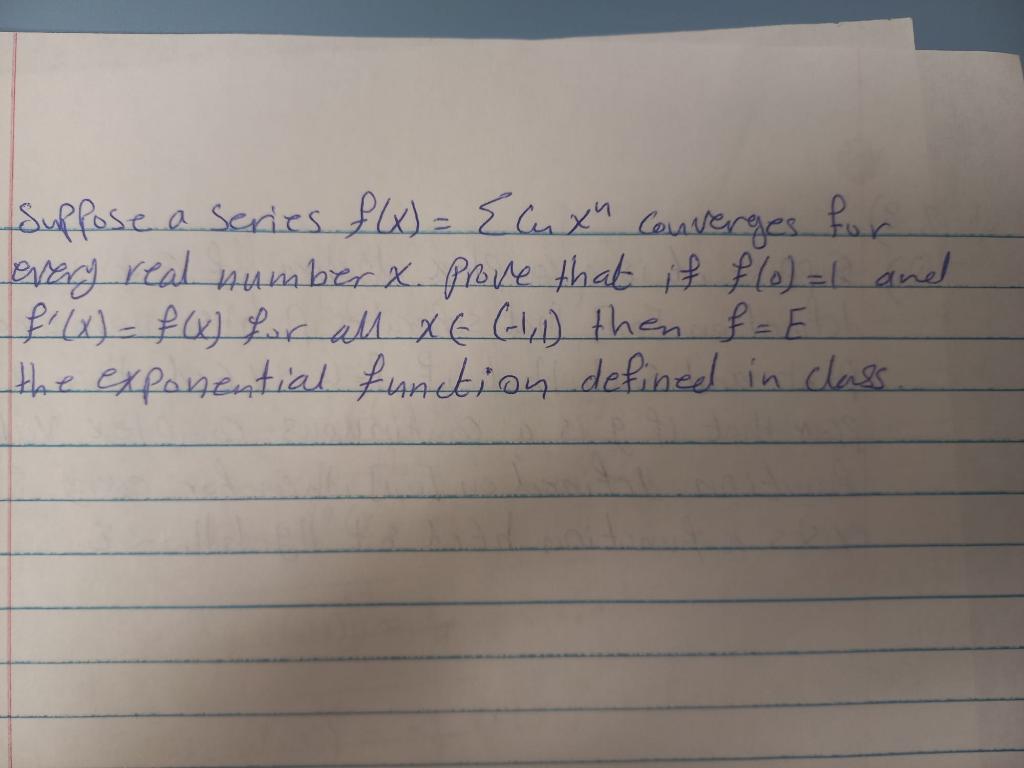 Suppose a series f(x) = Σ Cn xⁿ converges for
every real number x. prove that if f(0)=1 and
f'(x) = f(x) for all x ∈ (-1,1) then f = E
the exponential function defined in class.